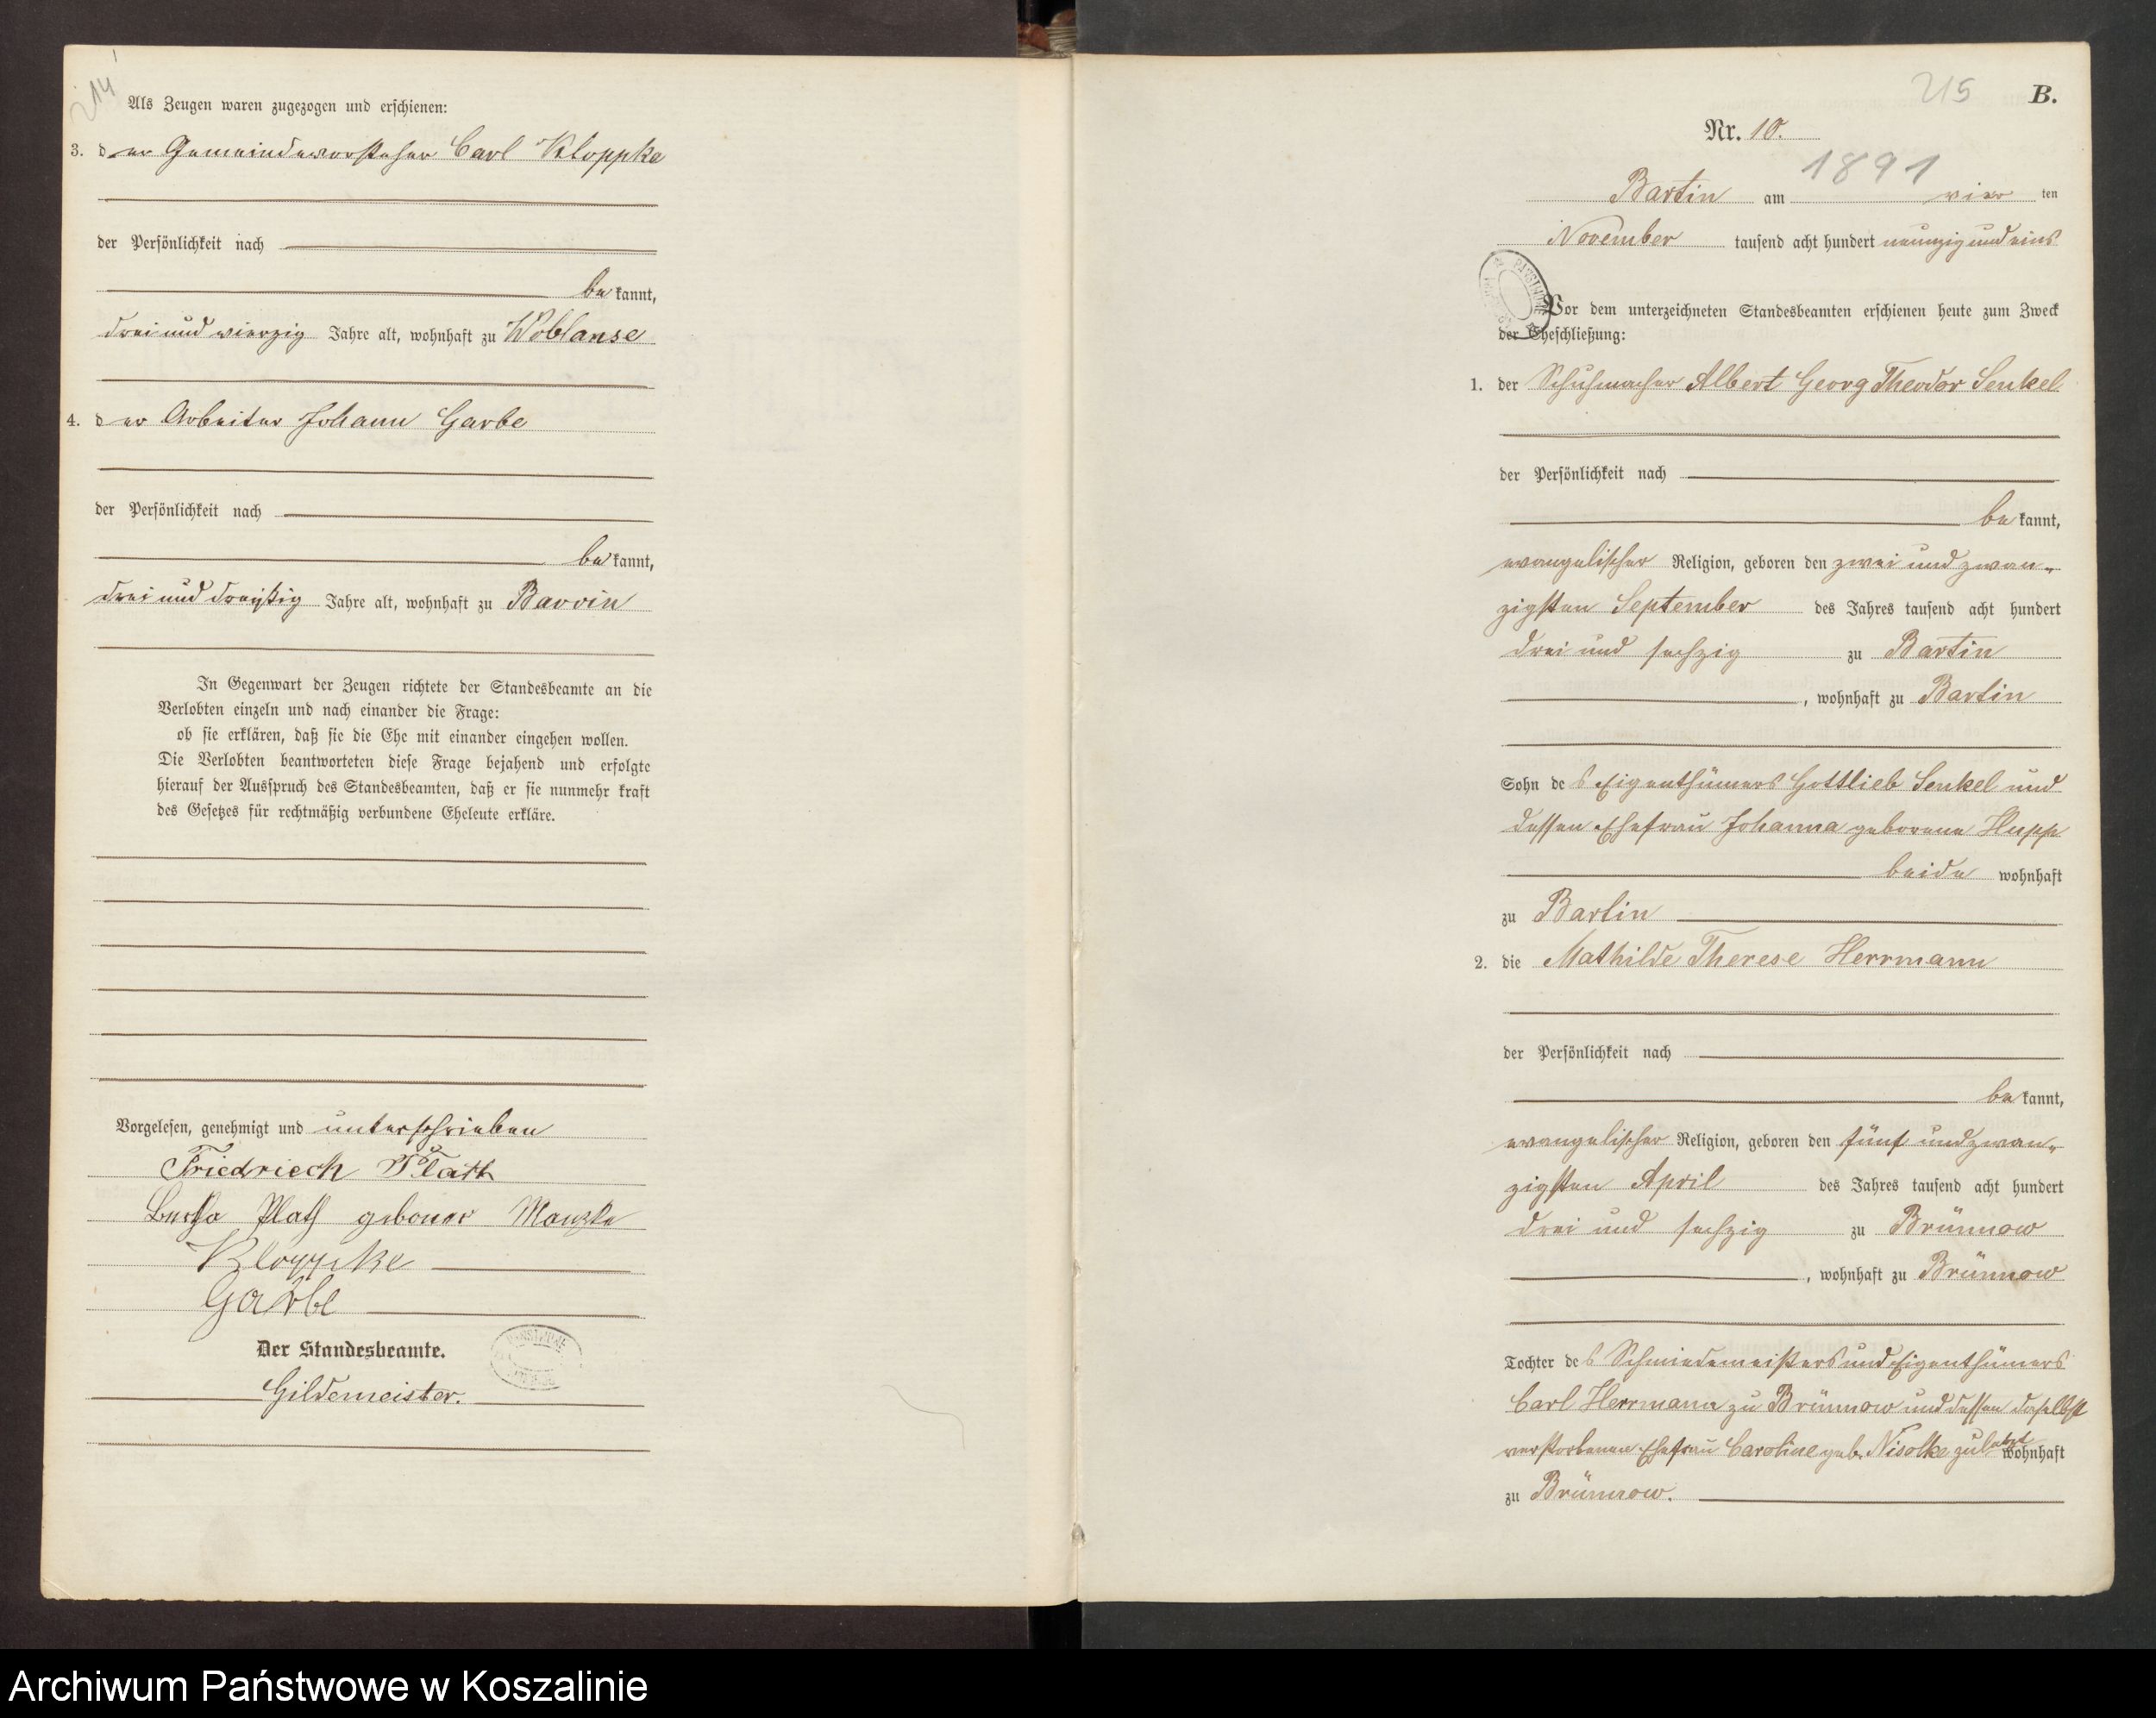 214
Als Zeugen waren zugezogen und erschienen:
3. der Gemeindevorsteher Carl Kloppke
der Persönlichkeit nach
bekannt,
drei und vierzig Jahre alt, wohnhaft zu Woblanse
4. der Arbeiter Johann Garbe
der Persönlichkeit nach
bekannt,
drei und dreißig Jahre alt, wohnhaft zu Barvin
In Gegenwart der Zeugen richtete der Standesbeamte an die
Verlobten einzeln und nach einander die Frage:
ob sie erklären, daß sie die Ehe mit einander eingehen wollen.
Die Verlobten beantworteten diese Frage bejahend und erfolgte
hierauf der Ausspruch des Standesbeamten, daß er sie nunmehr kraft
des Gesetzes für rechtmäßig verbundene Eheleute erkläre.
Vorgelesen, genehmigt und unterschrieben
Friedriech
Plath Manzke
Kloppke
Garbe
Der Standesbeamte.
Gildemeister.
215 B.
Nr. 10.
1891
Bartin am vier ten
November tausend acht hundert neunzig und eins
Vor dem unterzeichneten Standesbeamten erschienen heute zum Zweck
der Eheschließung:
1. der Schuhmacher Albert Georg Theodor Senkel
der Persönlichkeit nach
bekannt,
evangelischer Religion, geboren den zwei und zwan-
zigsten September des Jahres tausend acht hundert
drei und sechzig zu Bartin
, wohnhaft zu Bartin
Sohn des Eigenthümers Gottlieb Senkel und
dessen Ehefrau Johanna geborene Hupp
beide wohnhaft
zu Bartin
2. die Mathilde Therese Herrmann
der Persönlichkeit nach
bekannt,
evangelischer Religion, geboren den fünf und zwan-
zigsten April des Jahres tausend acht hundert
drei und sechzig zu Brünnow
, wohnhaft zu Brünnow
Tochter des Schmiedemeisters und Eigenthümers
Carl Herrmann zu Brünnow und dessen daselbst
verstorbenen Ehefrau Caroline geb. Nisolke zuletzt wohnhaft
zu Brünnow.
Archiwum Państwowe w Koszalinie